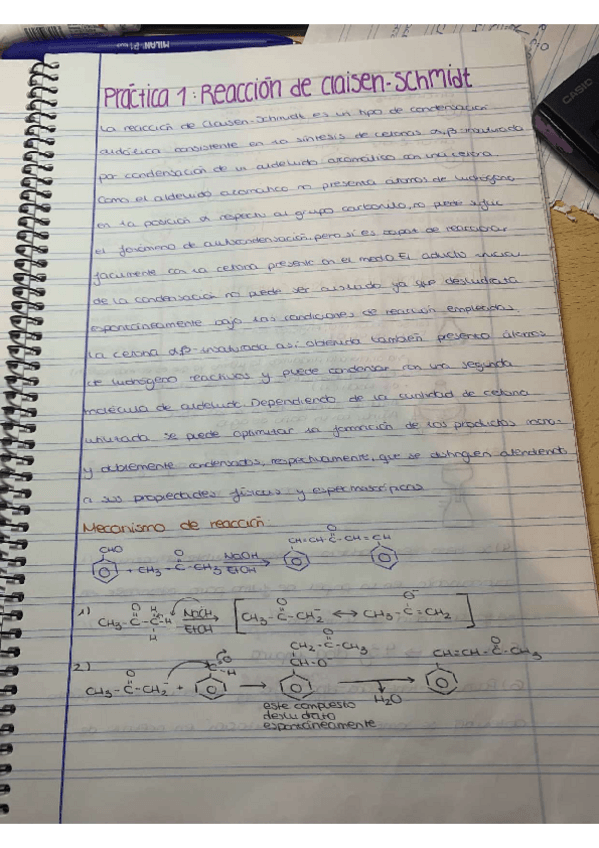 MILAN P1
CASIO
Práctica 1: Reacción de Claisen-Schmidt
La reacción de Claisen-Schmidt es un tipo de condensación
aldólica consistente en la síntesis de cetonas α,β-insaturada
por condensación de un aldehido aromático con una cetona.
Como el aldehido aromático no presenta átomos de hidrógeno
en la posición α respecto al grupo carbonilo, no puede sufrir
el fenómeno de autocondensación, pero sí es capaz de reaccionar
fácilmente con la cetona presente en el medio. El aducto inicial
de la condensación no puede ser aislado ya que deshidrata
espontáneamente bajo las condiciones de reacción empleadas.
La cetona α,β-insaturada así obtenida también presenta átomos
de hidrógeno reactivos y puede condensar con una segunda
molécula de aldehido. Dependiendo de la cantidad de cetona
utilizada se puede optimizar la formación de los productos mono-
y doblemente condensados, respectivamente, que se distinguen atendiendo
a sus propiedades físicas y espectroscópicas.
Mecanismo de reacción
CHO + CH3-C-CH3 NaOH EtOH CH=CH-C-CH=CH
O O
1) CH3-C-C-H NaOH EtOH [CH3-C-CH2⁻ ↔ CH3-C=CH2]
O H H O O⁻
2) CH3-C-CH2⁻ + C-H → CH2-C-CH3 CH-O⁻ → H2O CH=CH-C-CH3
O O O O
este compuesto
deshidrata
espontáneamente